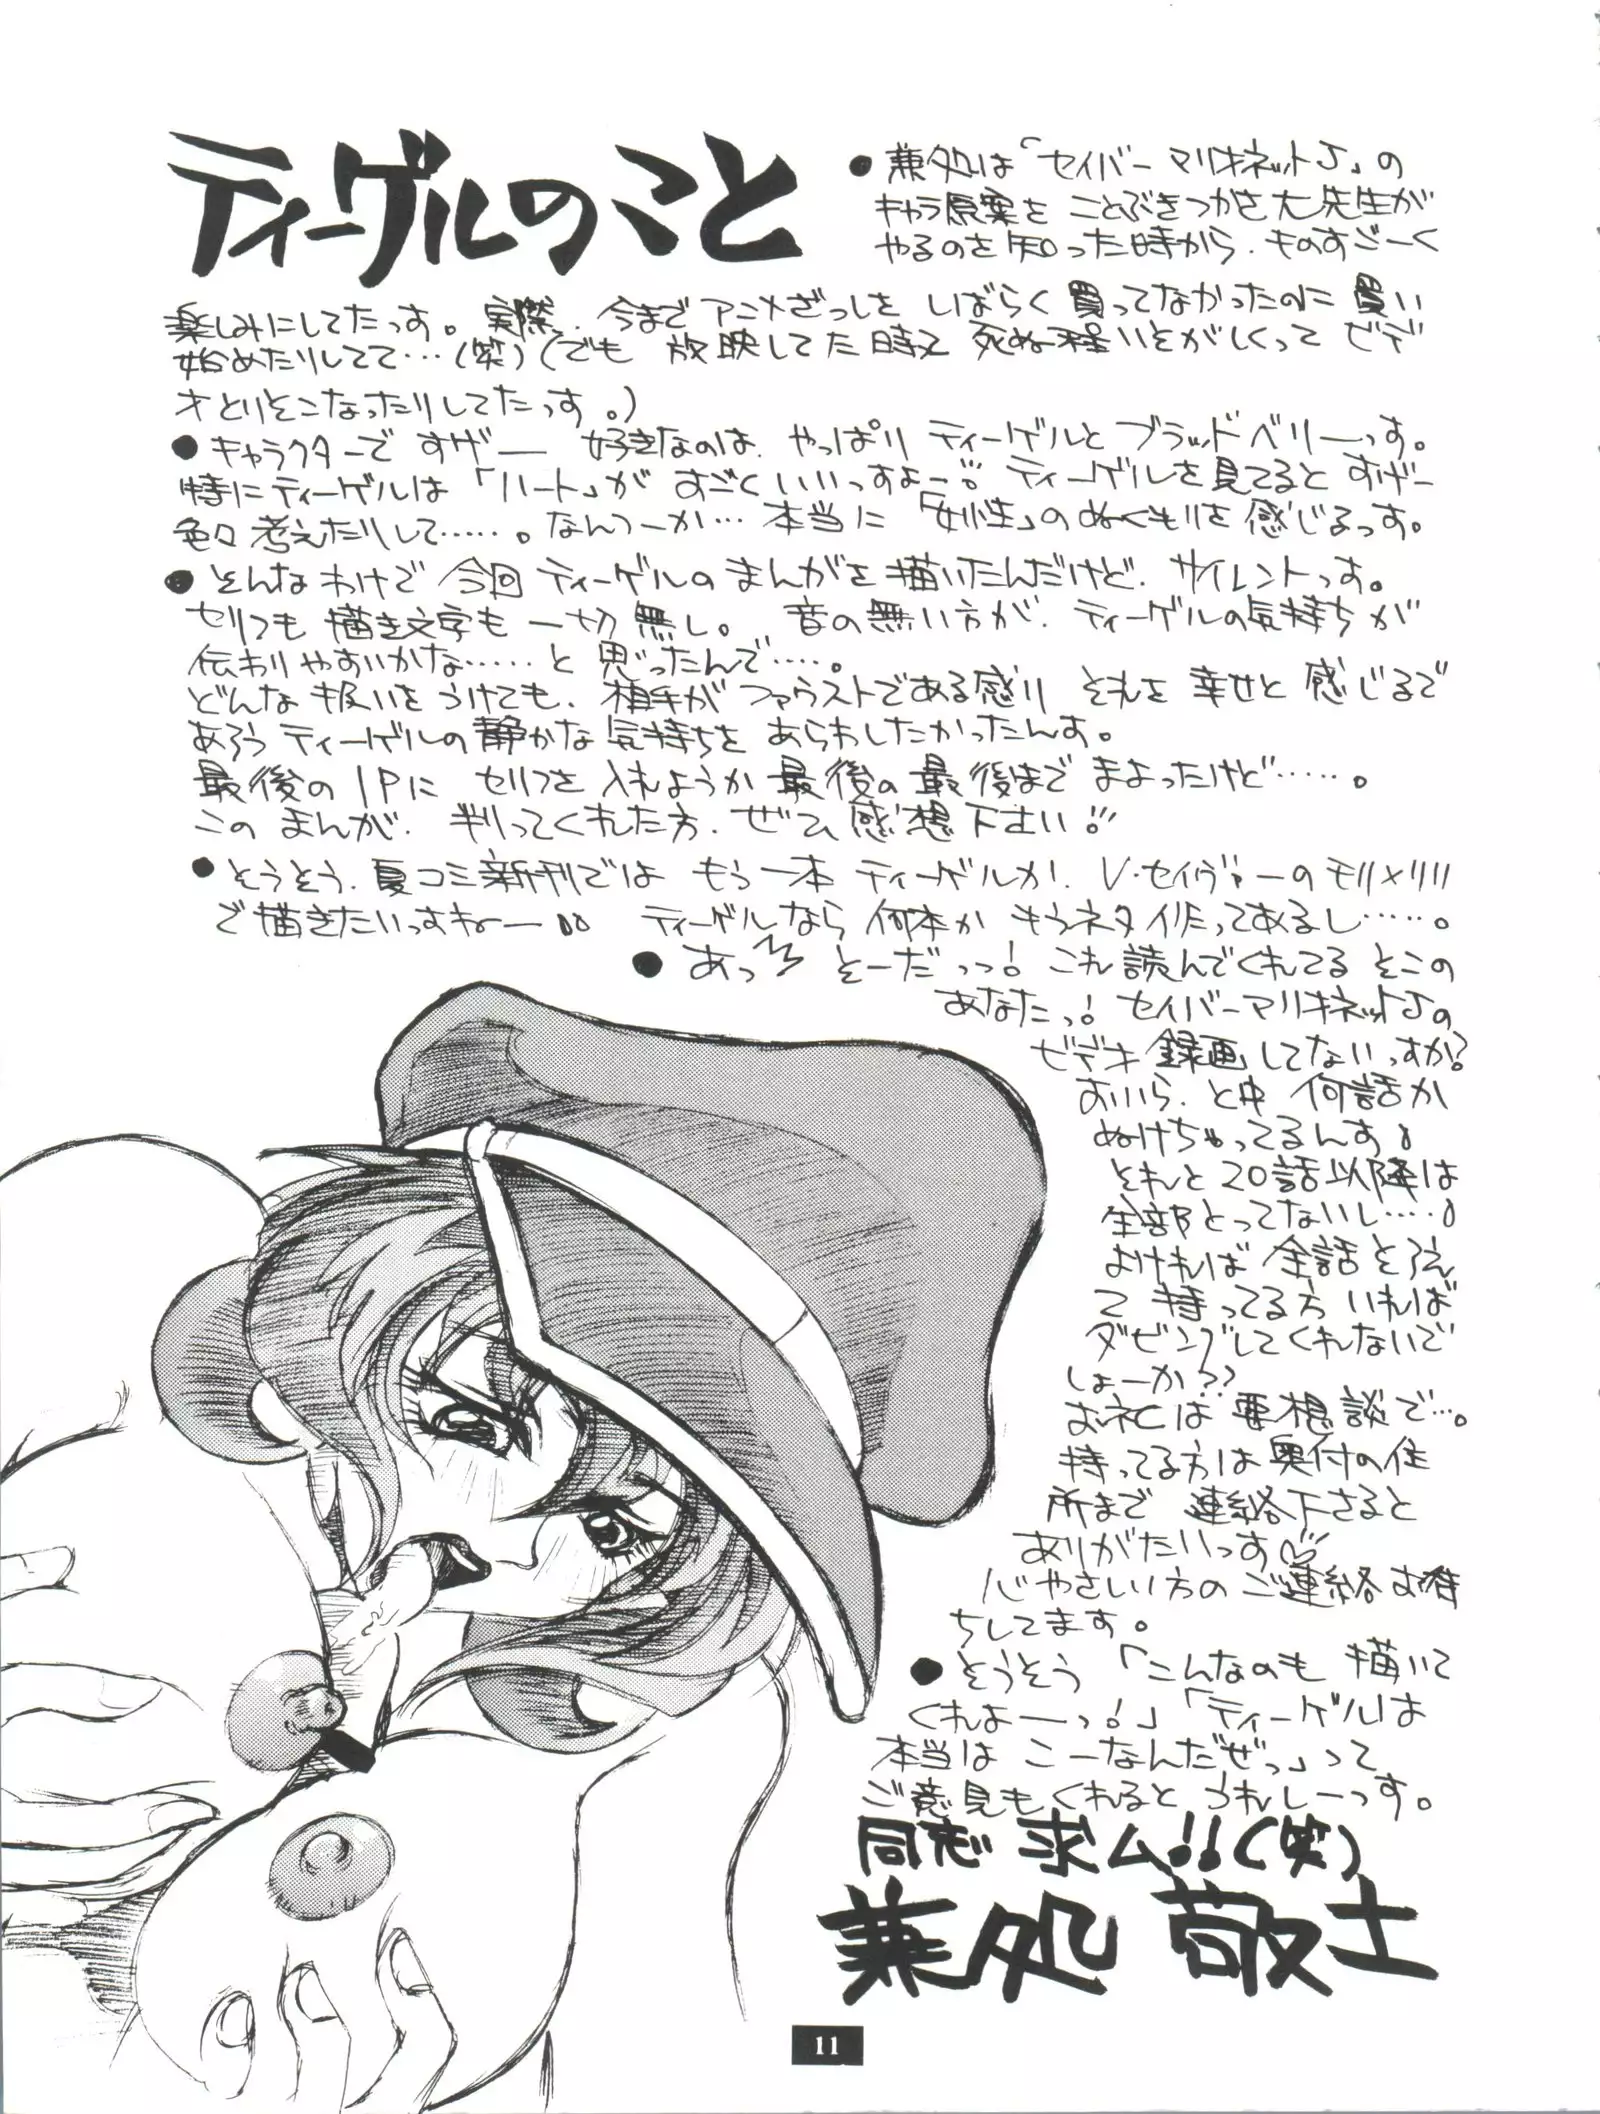 ティーゲルのこと
●兼処は「セイバーマリオネットJ」の
キャラ原案を ことぶきつかさ大先生が
やるのを知った時から、ものすごーく
楽しみにしてたっす。実際、今までアニメざっしを しばらく買ってなかったのに買い
始めたりしてて…(笑)(でも 放映してた時は 死ぬ程いそがしくって ビデ
オとりそこなったりしてたっす。)
●キャラクターで すげー 好きなのは、やっぱり ティーゲルと ブラッドベリーっす。
特にティーゲルは「ハート」が すごくいいっすよー!! ティーゲルを見てると すげー
色々考えだりして……。なんつーか… 本当に「女性」のぬくもりを感じるっす。
●そんなわけで 今回 ティーゲルの まんがを描いたんだけど、サイレントっす。
セリフも 描き文字も 一切無し。 音の無い方が、ティーゲルの気持ちが
伝わりやすいかな……と 思ったんで……。
どんな扱いを うけても、相手が ファウストである限り それを 幸せと 感じるで
あろう ティーゲルの静かな気持ちを あらわしたかったんす。
最後の1Pに セリフを入れようか 最後の最後まで まよったけど……。
この まんが、判ってくれた方、ぜひ 感想下さい!!
●そうそう、夏コミ新刊では もう一本 ティーゲルか、V・セイヴァーのモリ×リリ
で描きたいっすねー!! ティーゲルなら 何本か もうネタ作ってあるし……。
●あっ そーだっっ! これ読んでくれてる そこの
あなたっ! セイバーマリオネットJの
ビデオ 録画してないっすか?
おいら、と中 何話か
ぬけちゃってるんす!
それと 20話以降は
全部とってないし…!
おければ 全話 とろえ
て 持ってる方 いれば
ダビングしてくれないで
しょーか??
お礼は 要相談で…。
持ってる方は奥付の住
所まで 連絡下さると
ありがたいっす♡
心やさしい方の ご連絡お待
ちしてます。
●そうそう「こんなのも 描いて
くれよーっ!」「ティーゲルは
本当は こーなんだぜっ」って
ご意見もくれると うれしーっす。
同志 求ム!!(笑)
兼処 敬士
11